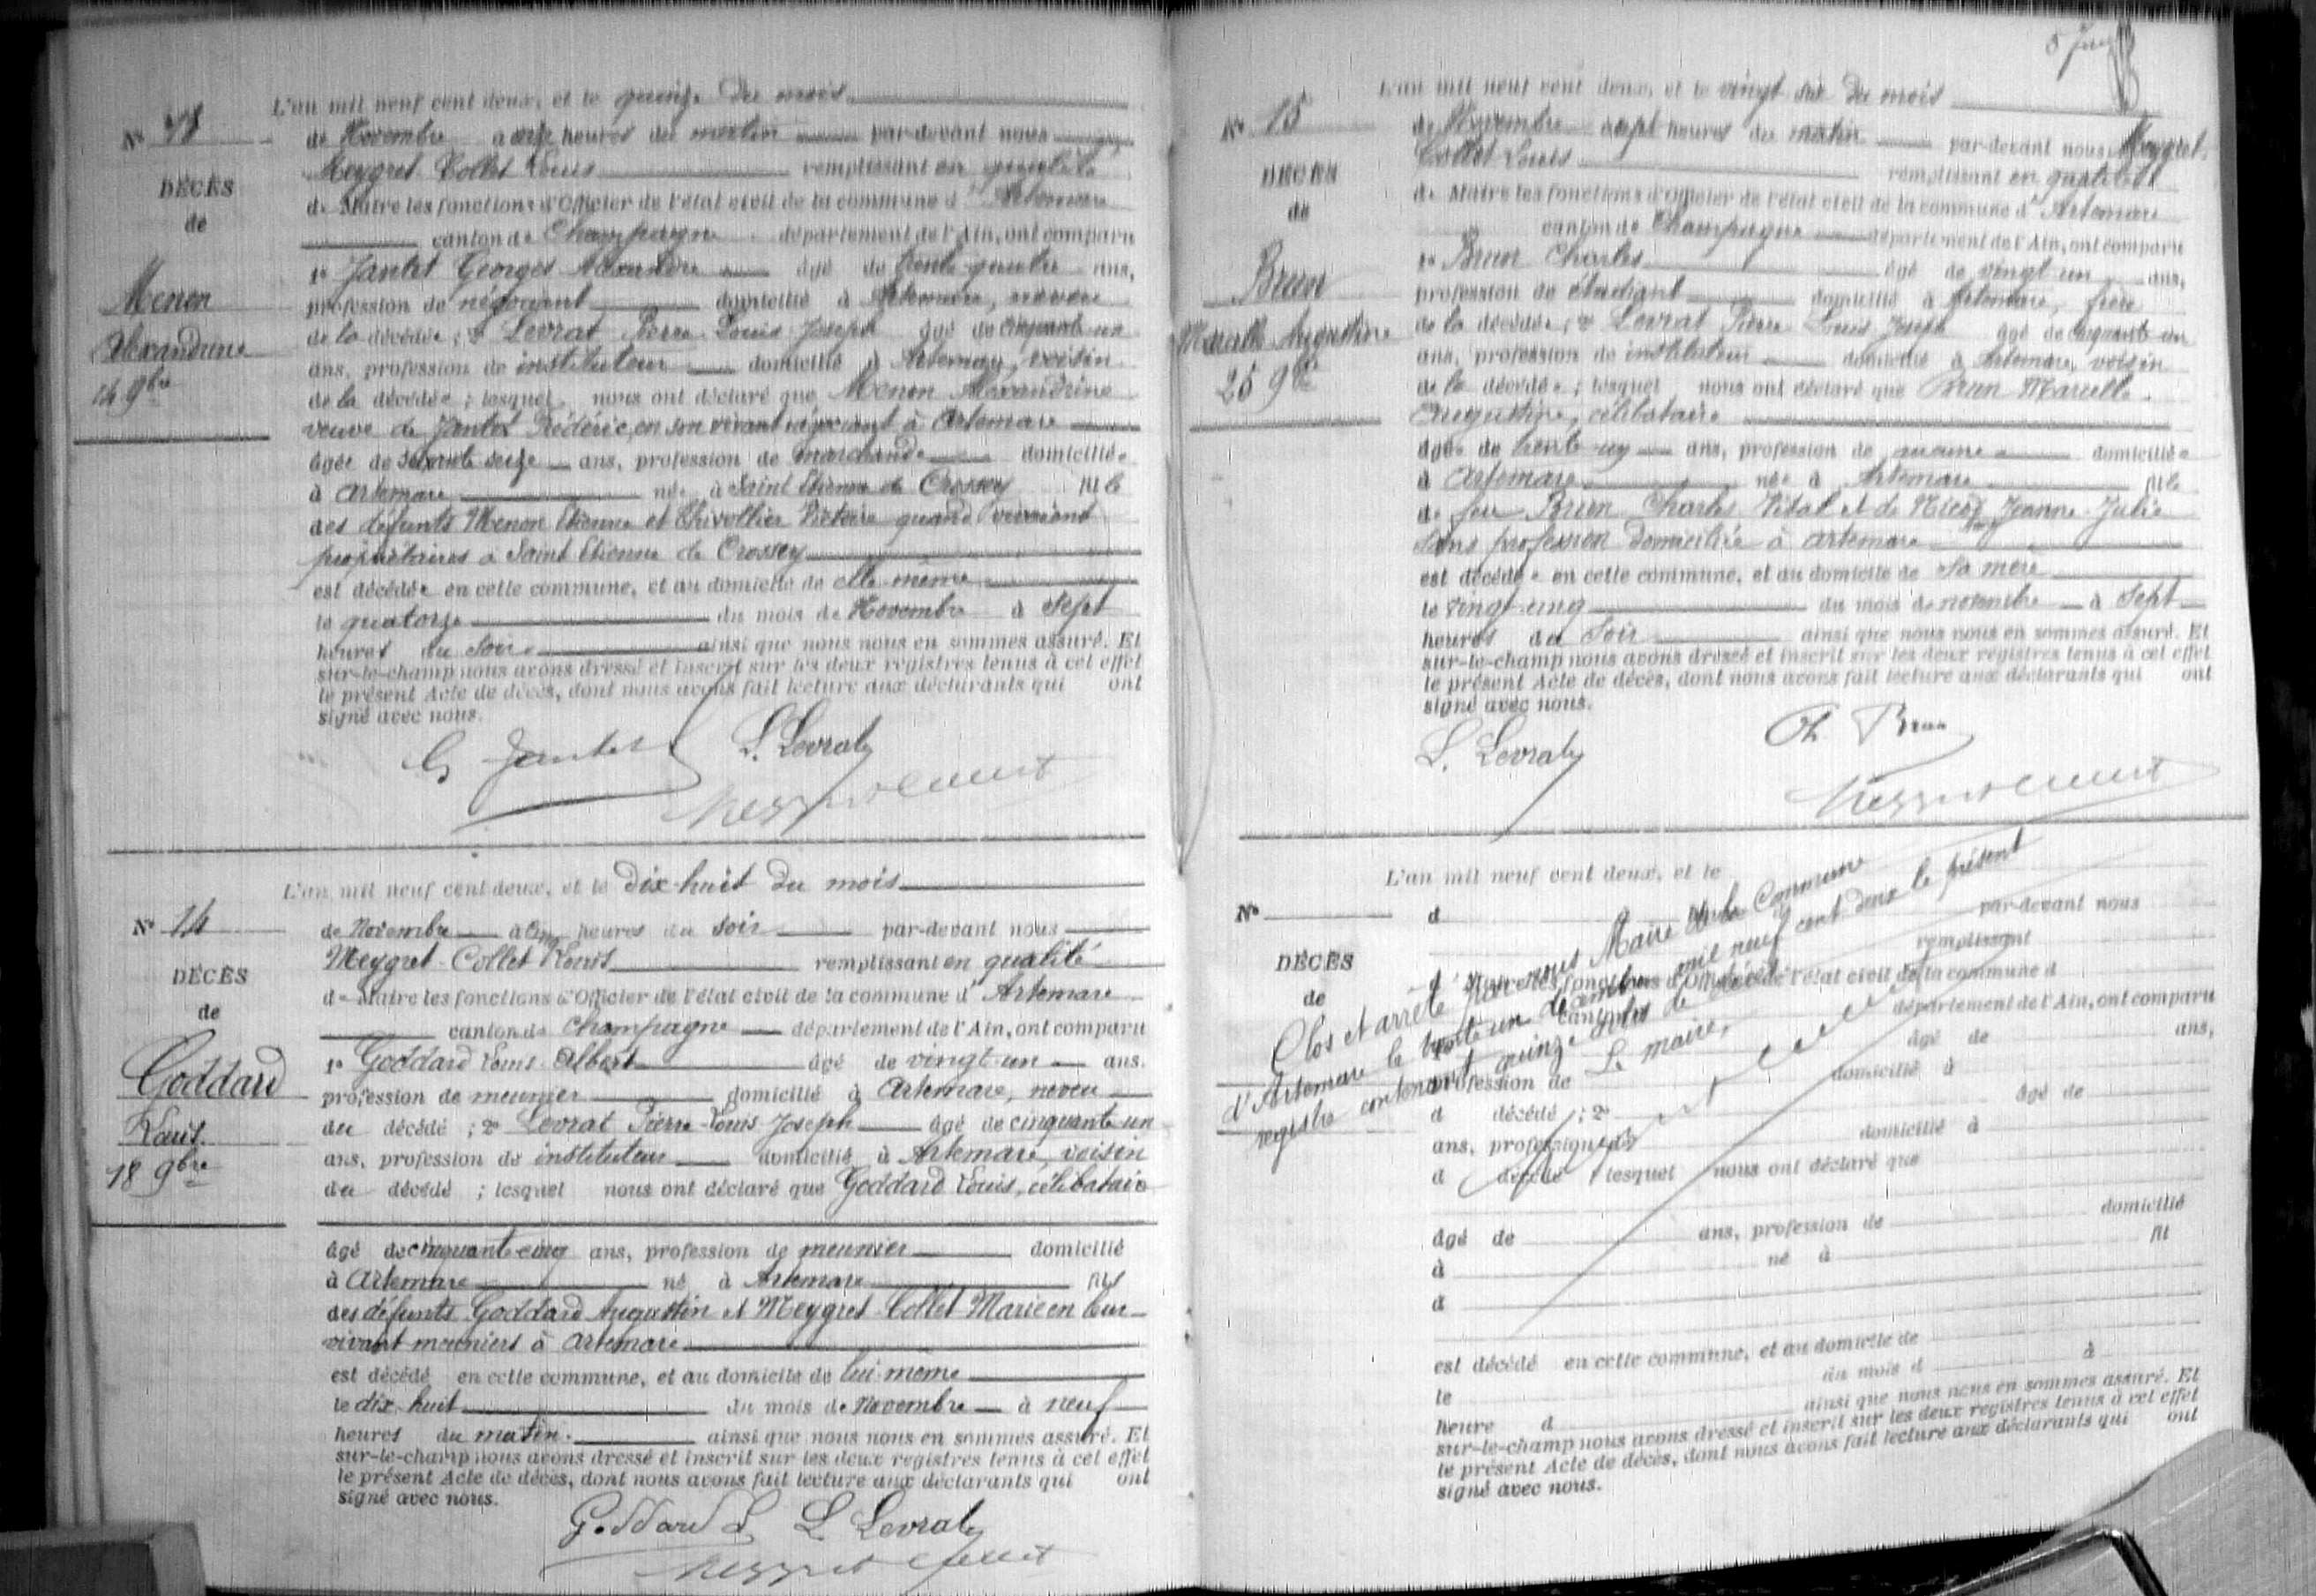 L'an mil neuf cent deux, et le quinze du mois
de Novembre à heures du matin par-devant nous
Meygret-Collet Louis remplissant en qualité
de Maire les fonctions d'Officier de l'état civil de la commune d'Artemare
canton de Champagne département de l'Ain, ont comparu
1° Jantet Georges Alexandre âgé de trente-quatre ans,
profession de négociant domicilié à Artemare, neveu
de la décédée ; 2° Levrat Pierre-Louis-Joseph âgé de cinquante-un
ans, profession de instituteur domicilié à Artemare, voisin
de la décédée ; lesquels nous ont déclaré que Menon Alexandrine
veuve de Jantet Frédéric, en son vivant négociant à Artemare
âgée de soixante-seize ans, profession de marchande domiciliée
à Artemare née à Saint Etienne de Crossey fille
des défunts Menon Etienne et Chivollier Victoire quand vivaient
propriétaires à Saint Etienne de Crossey
est décédée en cette commune, et au domicile de elle-même
le quatorze du mois de Novembre à sept
heures du soir ainsi que nous nous en sommes assuré. Et
sur-le-champ nous avons dressé et inscrit sur les deux registres tenus à cet effet
le présent Acte de décès, dont nous avons fait lecture aux déclarants qui ont
signé avec nous.
G Jantet L. Levrat
N°
DÉCÈS
de
Menon
Alexandrine
14 9bre
L'an mil neuf cent deux, et le dix-huit du mois
de Novembre à cinq heures du soir par-devant nous
Meygret-Collet Louis remplissant en qualité
de Maire les fonctions d'Officier de l'état civil de la commune d'Artemare
canton de Champagne département de l'Ain, ont comparu
1° Goddard Louis-Albert âgé de vingt-un ans.
profession de meunier domicilié à Artemare, neveu
du décédé ; 2° Levrat Pierre-Louis-Joseph âgé de cinquante-un
ans, profession de instituteur domicilié à Artemare, voisin
du décédé ; lesquel nous ont déclaré que Goddard Louis, célibataire
âgé de cinquante-cinq ans, profession de meunier domicilié
à Artemare né à Artemare fils
des défunts Goddard Augustin et Meygret-Collet Marie en leur
vivant meuniers à Artemare
est décédé en cette commune, et au domicile de lui-même
le dix-huit du mois de Novembre à neuf
heures du matin. ainsi que nous nous en sommes assuré. Et
sur-le-champ nous avons dressé et inscrit sur les deux registres tenus à cet effet
le présent Acte de décès, dont nous avons fait lecture aux déclarants qui ont
signé avec nous.
Goddard L L. Levrat
N° 14
DÉCÈS
de
Goddard
Louis
18 9bre
L'an mil neuf cent deux, et le vingt-six du mois
de Novembre à sept heures du matin par-devant nous Meygret-
Collet Louis remplissant en qualité
de Maire les fonctions d'Officier de l'état civil de la commune d'Artemare
canton de Champagne département de l'Ain, ont comparu
1° Brun Charles âgé de vingt-un ans,
profession de étudiant domicilié à Artemare, frère
de la décédée ; 2° Levrat Pierre-Louis-Joseph âgé de cinquante-un
ans, profession de instituteur domicilié à Artemare, voisin
de la décédée ; lesquel nous ont déclaré que Brun Marcelle-
Augustine, célibataire
âgée de ans, profession de aucune domiciliée
à Artemare née à Artemare fille
de feu Brun Charles-Vidal et de Nicod Jeanne-Julie
sans profession domiciliée à Artemare
est décédée en cette commune, et au domicile de sa mère
le vingt-cinq du mois de novembre à sept
heures du soir ainsi que nous nous en sommes assuré. Et
sur-le-champ nous avons dressé et inscrit sur les deux registres tenus à cet effet
le présent Acte de décès, dont nous avons fait lecture aux déclarants qui ont
signé avec nous.
L. Levrat Ch Brun
N° 15
DÉCÈS
de
Brun
Marcelle Augustine
25 9bre
L'an mil neuf cent deux, et le
d par-devant nous
remplissant
d Maire les fonctions d'Officier de l'état civil de la commune d
canton département de l'Ain, ont comparu
âgé de ans,
profession de domicilié à
d décédé ; 2° âgé de
ans, profession de domicilié à
d décédé lesquel nous ont déclaré que
âgé de ans, profession de domicilié
à né à fil
d
est décédé en cette commune, et au domicile de
le du mois d à
heure d ainsi que nous nous en sommes assuré. Et
sur-le-champ nous avons dressé et inscrit sur les deux registres tenus à cet effet
le présent Acte de décès, dont nous avons fait lecture aux déclarants qui ont
signé avec nous.
N°
DÉCÈS
de
Clos et arrêté par nous Maire de la Commune
d'Artemare le trente un décembre mil neuf cent deux le présent
registre contenant quinze actes de décès
Le maire,